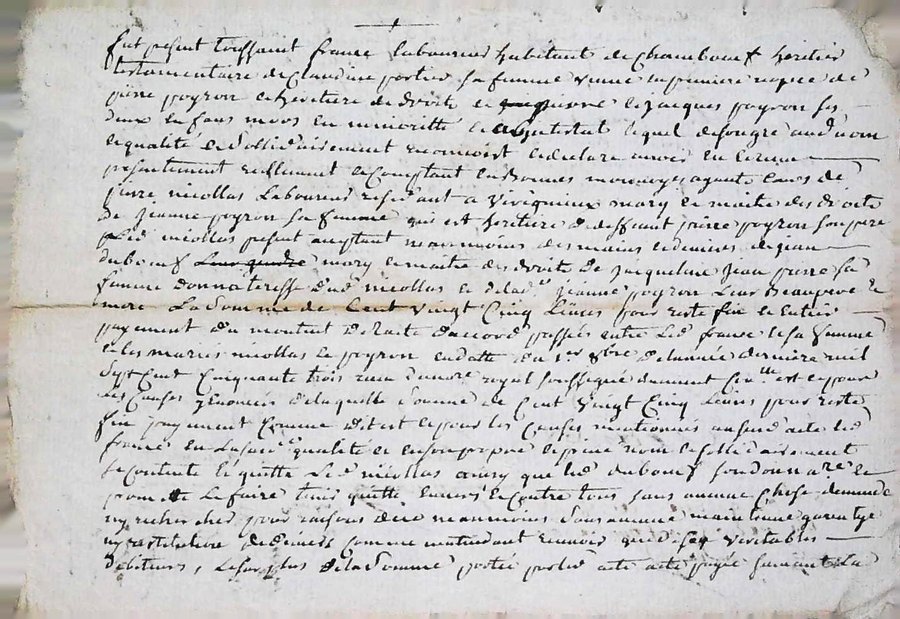 Fut present toussaint france laboureur habitant de Chambouf heritier
testamentaire de Claudine portier sa femme veuve en premiere nopces de
pierre poyron et heritiere de droite de jacques poyron ses
deux enfans mors en minoritté et lequel de son gré aud nom
et qualité et sollidairement reconnoist et declare avoir eu et receu
presentement reellement et Comptant en bonnes monnoyes ayants cours de
pierre nicollas Laboureur residant a Vivigneux mary et maitre des droite
de jeanne poyron sa femme qui est heritiere de deffunt pierre poyron son pere
Led nicollas present acceptant neanmoins des mains et deniers de jean
dubouf mary et maitre des droite de jacqueline jean pierre sa
femme donnateresse dud nicollas et de lad jeanne poyron Leur beaupere et
mere La Somme de Cent Vingt Cinq Livres pour reste fin et entier
payement du montant de traité daccord passées entre Led france et sa femme
et les mariés nicollas et poyron en datte du 1er xbre de lannee derniere mil
Sept Cent Cinquante trois receu dud nre royal soussigné et est et pour
Les Causes y enoncés de laquelle Somme de Cent Vingt Cinq Livres pour reste
fin payement Comme dit est et pour les Causes mentionnées aud acte led
france en Lasd qualité et en son propre et privé nom et sollidairement
se contente et quitte Led nicollas ainsy que led dubouf son donnare et
promet Le faire tenir quitte envers et Contre tous sans aucune Chose demande
ny rechercher pour raisons de ce neanmoins sans aucune maintenue garentye
ny restitution de deniers Comme recevoir que de ses veritables
debiteurs, Le surplus de la Somme portée acte payé suivant La